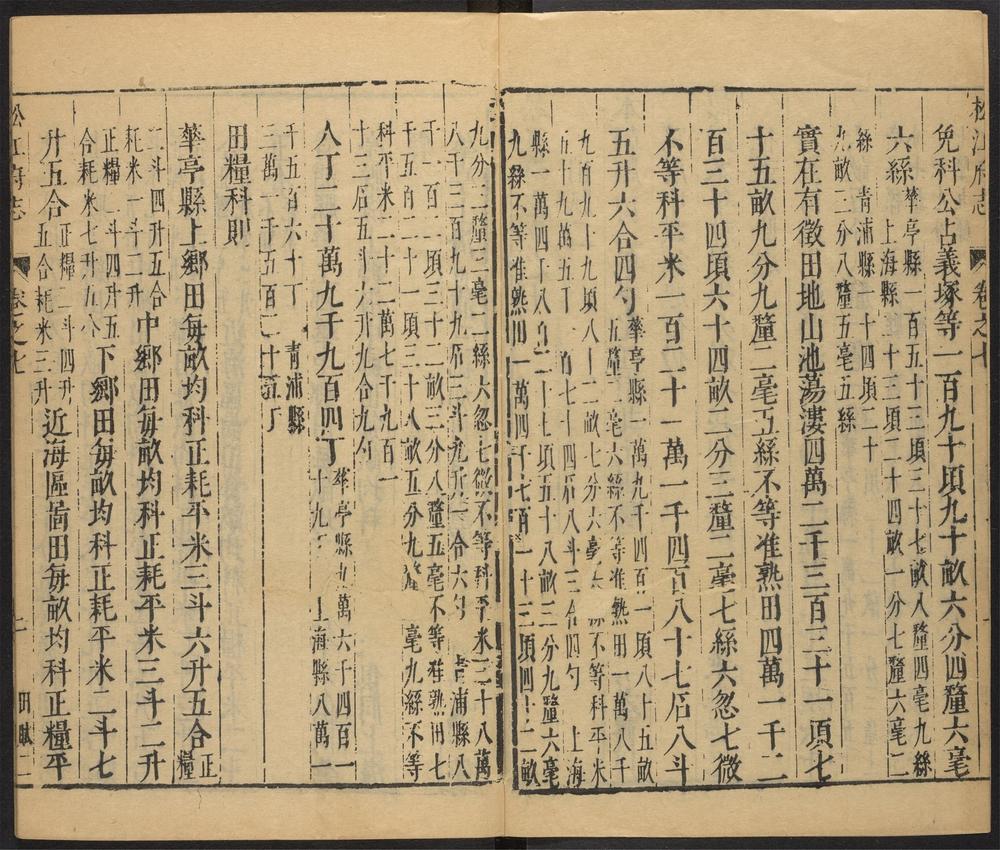 松江府志 卷之七
免科公占義塚等一百九十頃九十畝六分四釐六毫
六絲華亭縣一百五十三頃三十七畝八釐四毫九絲
上海縣二十三頃二十四畝一分七釐六毫二
絲 青浦縣一十四頃二十
九畝二分八釐五毫五絲
實在有徵田地山池蕩漊四萬二千三百三十一頃七
十五畝九分九釐二毫五絲不等准熟田四萬一千二
百三十四頃六十四畝二分三釐二毫七絲六忽七微
不等科平米一百二十一萬一千四百八十七石八斗
五升六合四勺華亭縣一萬九千四百一頃八十五畝
五釐二毫六絲不等准熟田一萬八千
九百九十九頃八十二畝七分六毫
絲不等科平米
五十九萬五千
七十四石八斗三合四勺 上海
縣一萬四千八百
二十七頃五十八畝三分九釐六毫
九絲不等准熟田一萬四千七百一十三頃四十二畝
九分二釐三毫二絲六忽七微不等科平米三十八萬
八千三百九十九石三斗九升一合六勺 青浦縣八
千一百二頃三十二畝三分八釐五毫不等准熟田七
千五百二十一頃三十八畝五分九釐
毫九絲不等
科平米二十二萬七千九百一
十三石五斗六升九合九勺
人丁二十萬九千九百四丁華亭縣九萬六千四百一
十九丁 上海縣八萬一
千五百六十丁 青浦縣
三萬一千五百二十五丁
田糧科則
華亭縣上鄉田每畝均科正耗平米三斗六升五合正糧
二斗四升五合
耗米一斗二升
中鄉田每畝均科正耗平米三斗二升
正糧二斗四升五
合耗米七升五合
下鄉田每畝均科正耗平米二斗七
升五合正糧二斗四升
五合耗米三升
近海區啚田每畝均科正糧平
松江府志 卷之七 田賦二